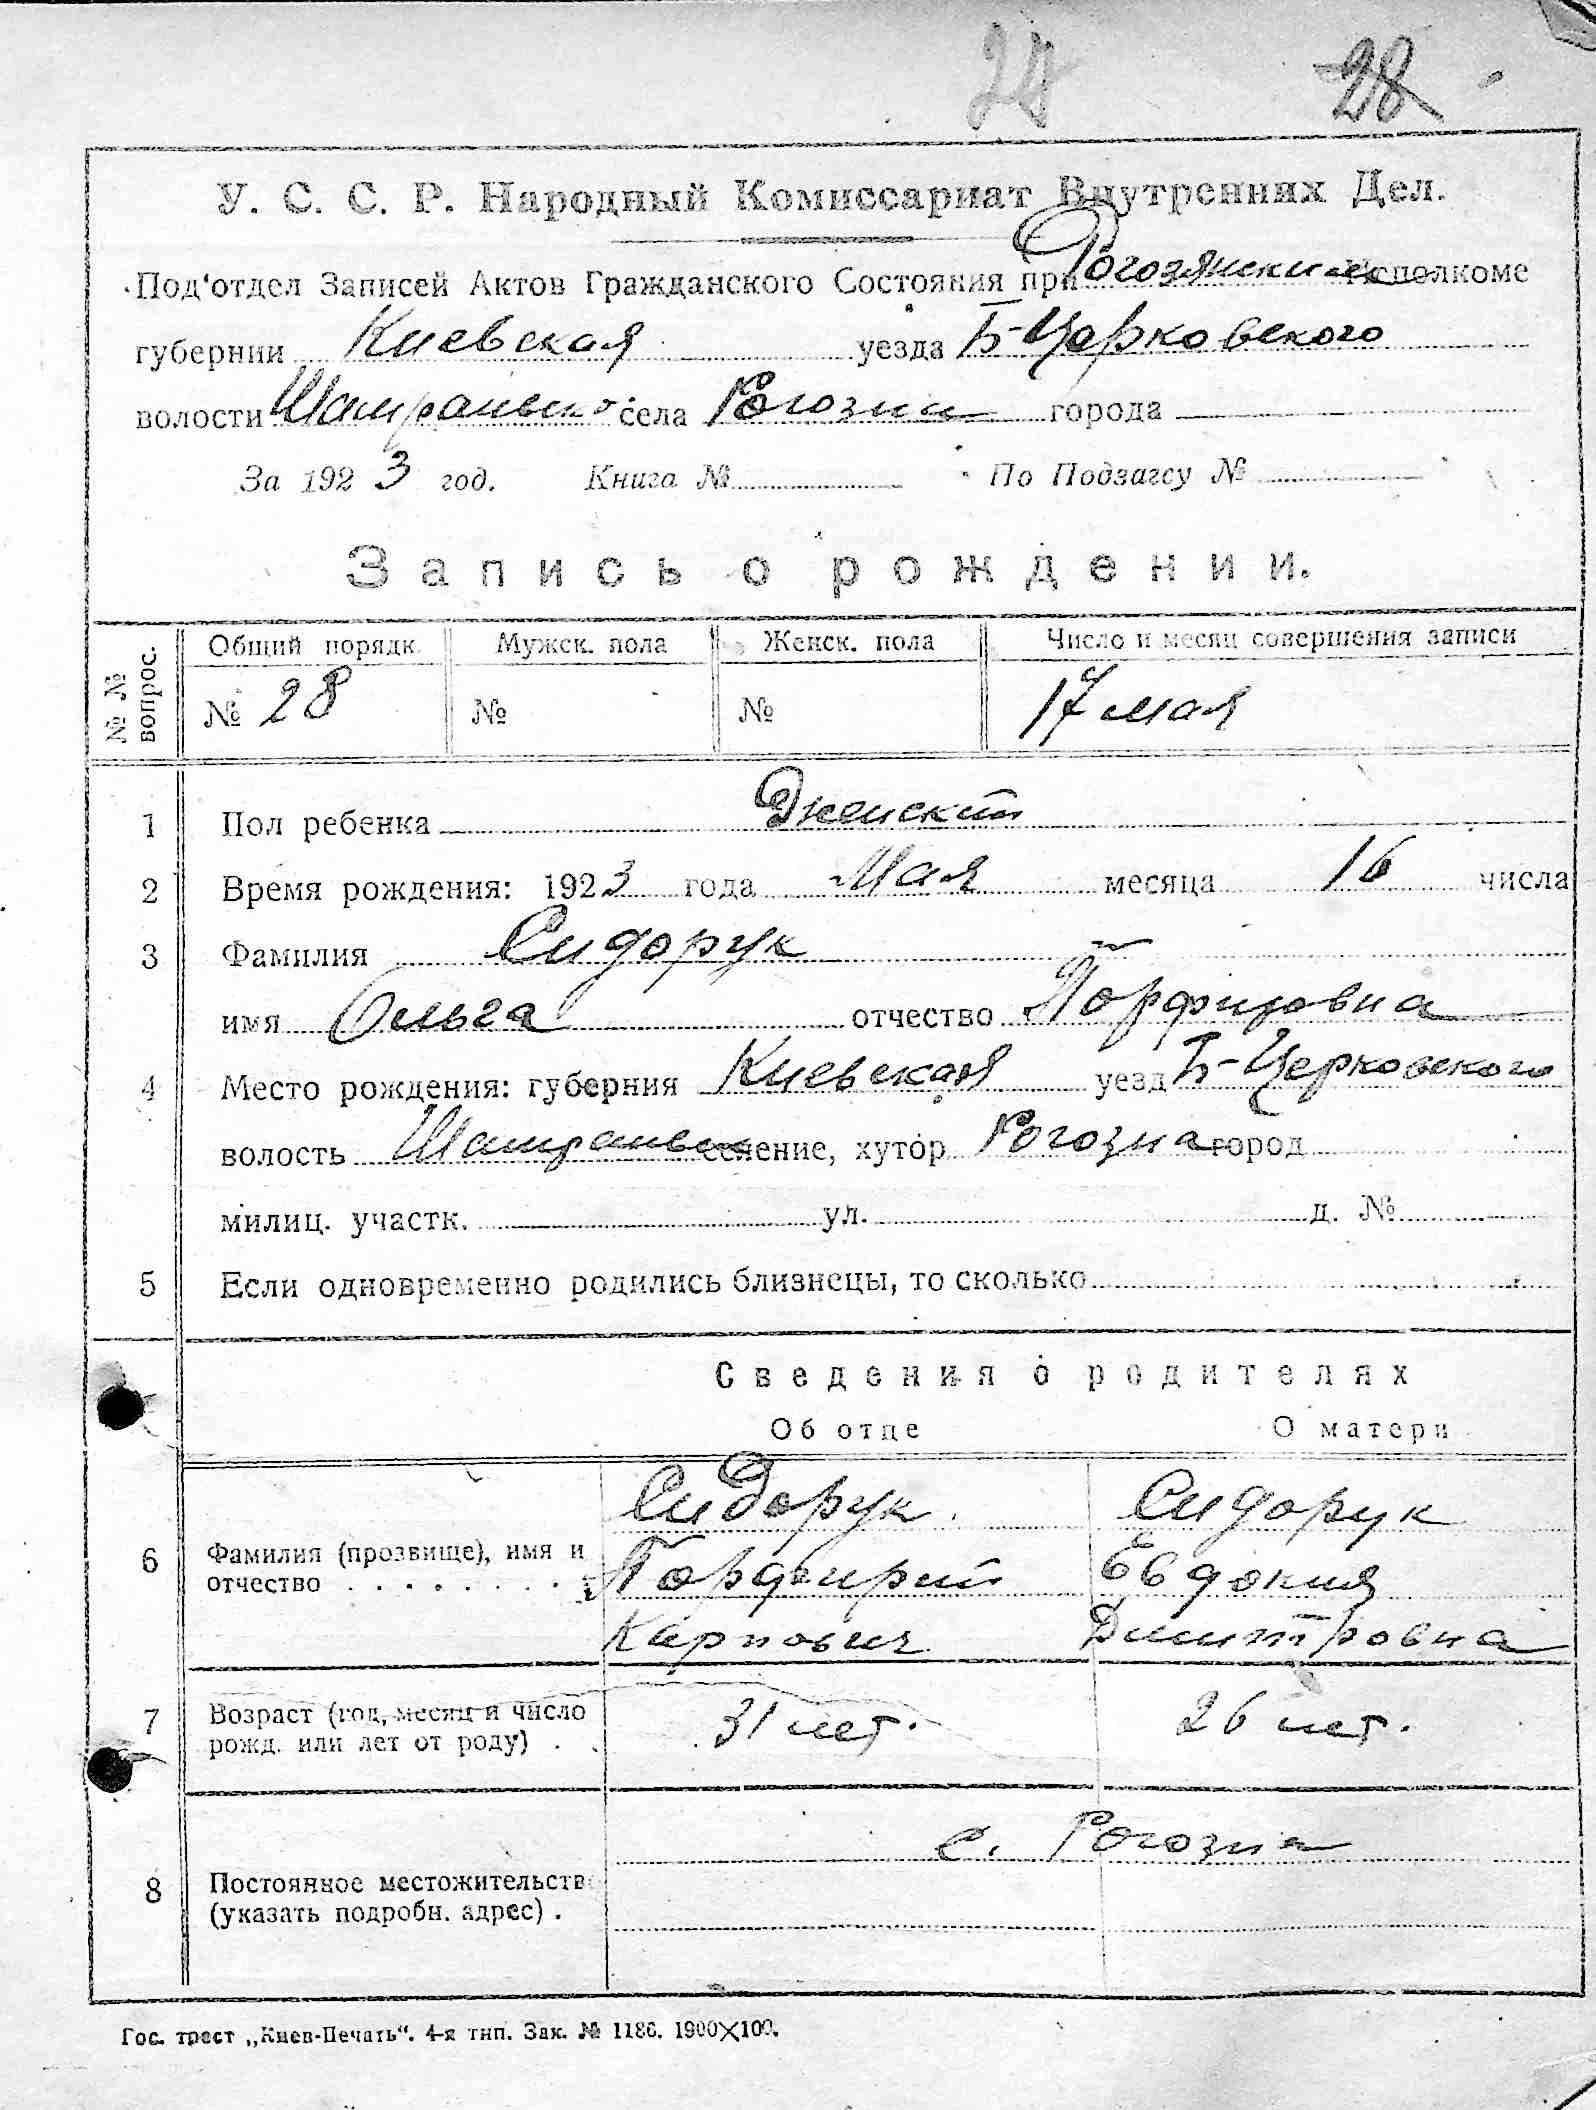 28
У. С. С. Р. Народный Комиссариат Внутренних Дел.
Под'отдел Записей Актов Гражданского Состояния при Рогозянским Исполкоме
губернии Киевская уезда Б-Церковского
волости села Рогозни города
За 1923 год. Книга № По Подзагсу №
Запись о рождении.
№ № вопрос. Общий порядк. Мужск. пола Женск. пола Число и месяц совершения записи
№ 28 № № 17 мая
1 Пол ребенка Женский
2 Время рождения: 1923 года Мая месяца 16 числа
3 Фамилия Сидорук
имя Ольга отчество Порфировна
4 Место рождения: губерния Киевская уезд Б-Церковского
волость селение, хутор Рогозна город
милиц. участк. ул. д. №
5 Если одновременно родились близнецы, то сколько
Сведения о родителях
Об отце О матери
Сидорук Сидорук
6 Фамилия (прозвище), имя и Порфирий Евдокия
отчество Карпович Димитровна
7 Возраст (год, месяц и число 31 лет. 26 лет.
рожд. или лет от роду)
с. Рогозна
8 Постоянное местожительство
(указать подробн. адрес)
Гос. трест „Киев-Печать“. 4-я тип. Зак. № 1186. 1900×100.